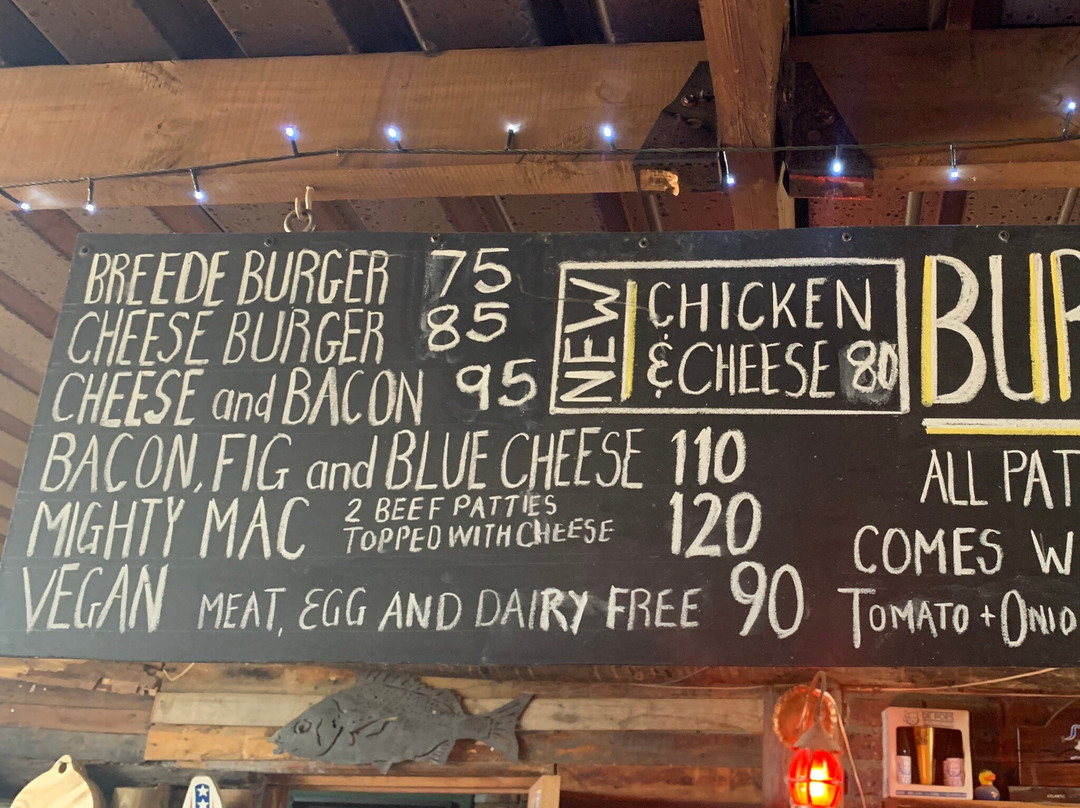 BREEDE BURGER 75
CHEESE BURGER 85
CHEESE and BACON 95
BACON, FIG and BLUE CHEESE 110
MIGHTY MAC 2 BEEF PATTIES
TOPPED WITH CHEESE 120
VEGAN MEAT, EGG AND DAIRY FREE 90
NEW
CHICKEN
& CHEESE 80
BUR
ALL PAT
COMES W
TOMATO + ONIO